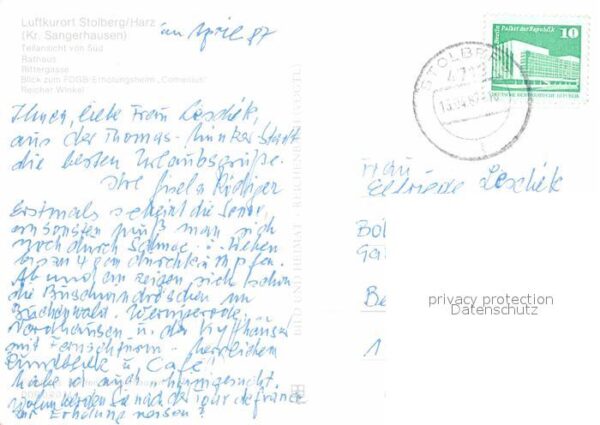 Luftkurort Stolberg/Harz
(Kr. Sangerhausen)
Teilansicht von Süd
Rathaus
Rittergasse
Blick zum FDGB-Erholungsheim „Comenius"
Reicher Winkel
im April 87
Ihnen, liebe Frau Leschik,
aus der Thomas-Münzer Stadt
die besten Urlaubsgrüße.
Ihre Gisela Rüdiger
Erstmals scheint die Sonne,
ansonsten muß man sich
noch durch Schnee
bis zu 4 cm durchkämpfen.
Ab und an zeigen sich schon
die Buschwindröschen im
Buchenwald. Wernigerode,
Nordhausen u. der Kyffhäuser
mit Fernsehturm - herrlichem
Rundblick u. Cafe
habe ich auch
Wohin werden Sie nach der Tour de france
zur Erholung reisen?
BILD UND HEIMAT REICHENBACH (VOGTL)
STOLBERG
4713
10
Berlin Palast der Republik
DDR
Frau
Elfriede Leschik
Be
1
privacy protection
Datenschutz